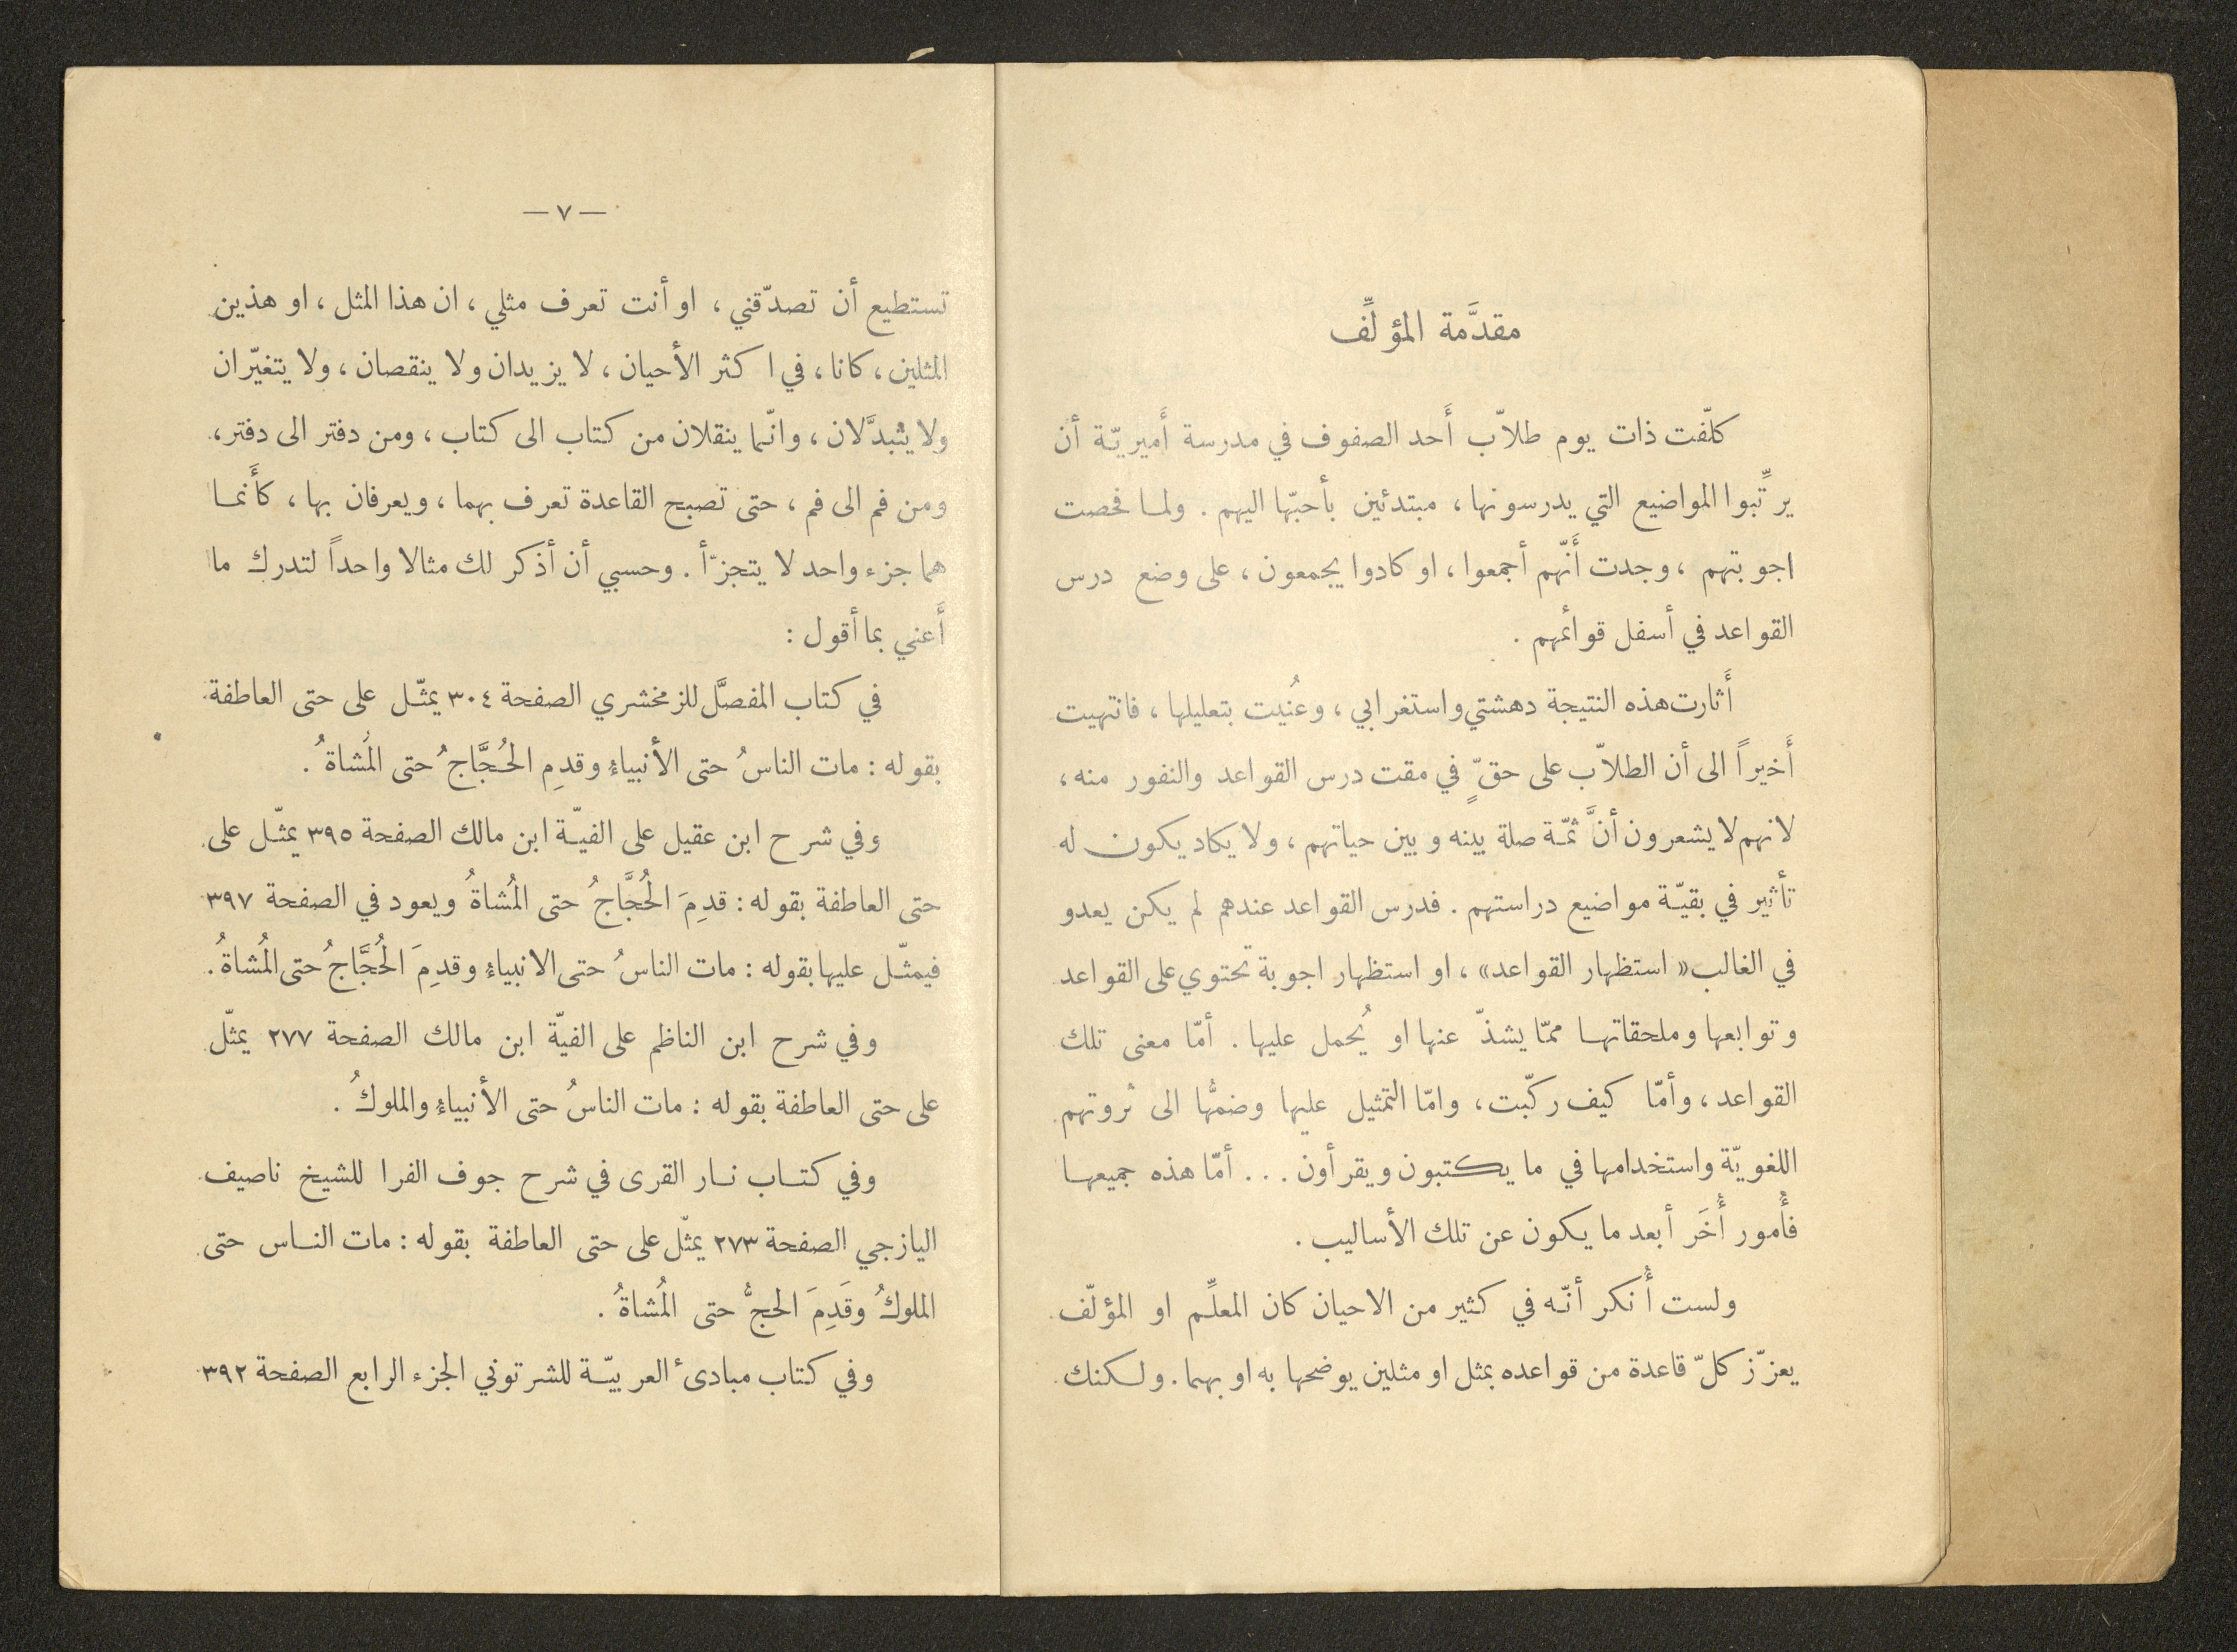 مقدَّمة المؤلِّف
كلّفت ذات يوم طلاّب أَحد الصفوف في مدرسة أَميريّة أن
يرتِّبوا المواضيع التي يدرسونها، مبتدئين بأحبّها اليهم. ولما فحصت
اجوبتهم، وجدت أَنّهم أجمعوا، او كادوا يجمعون، على وضع درس
القواعد في أسفل قوائمهم.
أَثارت هذه النتيجة دهشتي واستغرابي، وعُنيت بتعليلها، فانتهيت
أَخيراً الى أن الطلاّب على حقّ ٍ في مقت درس القواعد والنفور منه،
لانهم لا يشعرون أنَّ ثمّة صلة بينه وبين حياتهم، ولا يكاد يكون له
تأثير في بقيّة مواضيع دراستهم. فدرس القواعد عندهم لم يكن يعدو
في الغالب «استظهار القواعد»، او استظهار اجوبة تحتوي على القواعد
وتوابعها وملحقاتها ممّا يشذّ عنها او يُحمل عليها. أمّا معنى تلك
القواعد، وأمّا كيف ركّبت، وامّا التمثيل عليها وضمُّها الى ثروتهم
اللغويّة واستخدامها في ما يكتبون ويقرأون... أمّا هذه جميعها
فأُمور أُخَر أبعد ما يكون عن تلك الأساليب.
ولست أُنكر أنّه في كثير من الاحيان كان المعلِّم او المؤلّف
يعزّز كلّ قاعدة من قواعده بمثل او مثلين يوضحها به او بهما. ولكنك
— ٧ —
تستطيع أن تصدّقني، او أنت تعرف مثلي، ان هذا المثل، او هذين
المثلين، كانا، في اكثر الأحيان، لا يزيدان ولا ينقصان، ولا يتغيّران
ولا يتبدَّلان، وانّما ينقلان من كتاب الى كتاب، ومن دفتر الى دفتر،
ومن فم الى فم، حتى تصبح القاعدة تعرف بهما، ويعرفان بها، كأَنما
هما جزء واحد لا يتجزّأ. وحسبي أن أذكر لك مثالا واحداً لتدرك ما
أَعني بما أقول:
في كتاب المفصَّل للزمخشري الصفحة ٣٠٤ يمثّل على حتى العاطفة
بقوله: مات الناسُ حتى الأنبياءُ وقدِم الحُجَّاجُ حتى المُشاةُ.
وفي شرح ابن عقيل على الفيّة ابن مالك الصفحة ٣٩٥ يمثّل على
حتى العاطفة بقوله: قدِمَ الحُجَّاجُ حتى المُشاةُ ويعود في الصفحة ٣٩٧
فيمثّل عليها بقوله: مات الناسُ حتى الانبياءُ وقدِمَ الحُجَّاجُ حتى المُشاةُ.
وفي شرح ابن الناظم على الفيّة ابن مالك الصفحة ٢٧٧ يمثّل
على حتى العاطفة بقوله: مات الناسُ حتى الأنبياءُ والملوكُ.
وفي كتاب نار القرى في شرح جوف الفرا للشيخ ناصيف
اليازجي الصفحة ٢٧٣ يمثّل على حتى العاطفة بقوله: مات الناس حتى
الملوكُ وقَدِمَ الحجُّ حتى المُشاةُ.
وفي كتاب مبادىء العربيّة للشرتوني الجزء الرابع الصفحة ٣٩٢